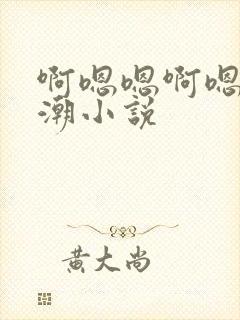 啊嗯嗯啊嗯
潮小説
黄大尚